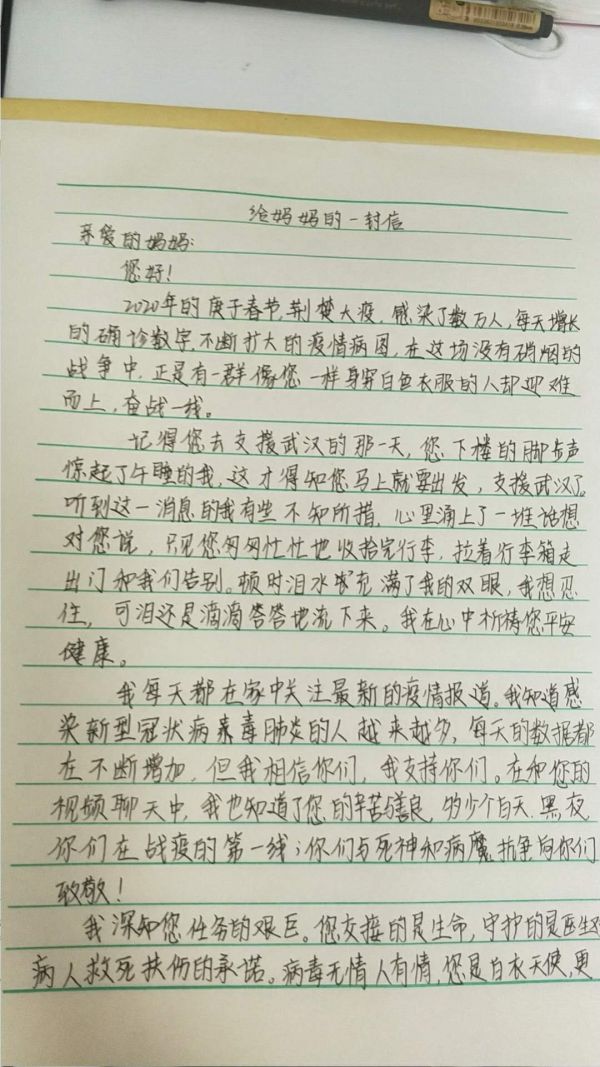 给妈妈的一封信
亲爱的妈妈:
您好!
2020年的庚子春节,荆楚大疫,感染了数万人,每天增长
的确诊数字,不断扩大的疫情病图,在这场没有硝烟的
战争中,正是有一群像您一样身穿白色衣服的人却迎难
而上,奋战一线。
记得您去支援武汉的那一天,您下楼的脚步声
惊起了午睡的我,这才得知您马上就要出发,支援武汉了。
听到这一消息的我有些不知所措,心里涌上了一堆话想
对您说,只见您匆匆忙忙地收拾完行李,拉着行李箱走
出门和我们告别。顿时泪水充满了我的双眼,我想忍
住,可泪还是滴滴答答地流下来。我在心中祈祷您平安
健康。
我每天都在家中关注最新的疫情报道。我知道感
染新型冠状病毒肺炎的人越来越多,每天的数据都
在不断增加,但我相信你们,我支持你们。在和您的
视频聊天中,我也知道了您的辛苦与善良,多少个白天、黑夜
你们在战疫的第一线;你们与死神和病魔抗争向你们
致敬!
我深知您任务的艰巨。您交接的是生命,守护的是医生对
病人救死扶伤的承诺。病毒无情人有情,您是白衣天使,更